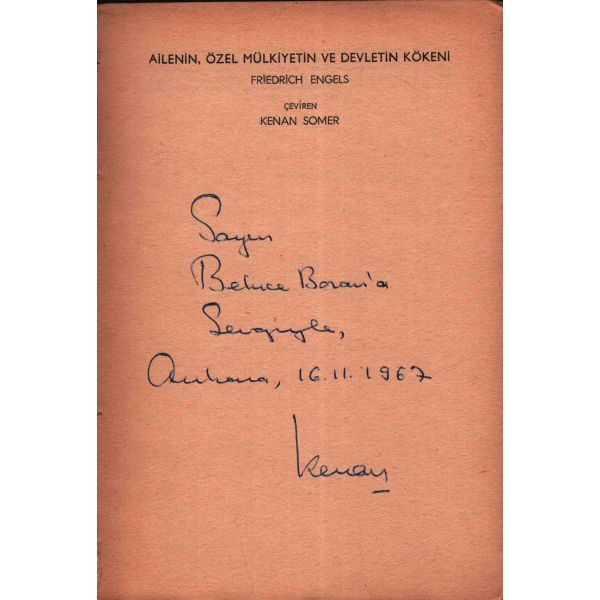 AİLENİN, ÖZEL MÜLKİYETİN VE DEVLETİN KÖKENİ
FRİEDRİCH ENGELS
ÇEVİREN
KENAN SOMER
Sayın
Behice Boran'a
Sevgiyle,
Ankara, 16.11.1967
Kenan